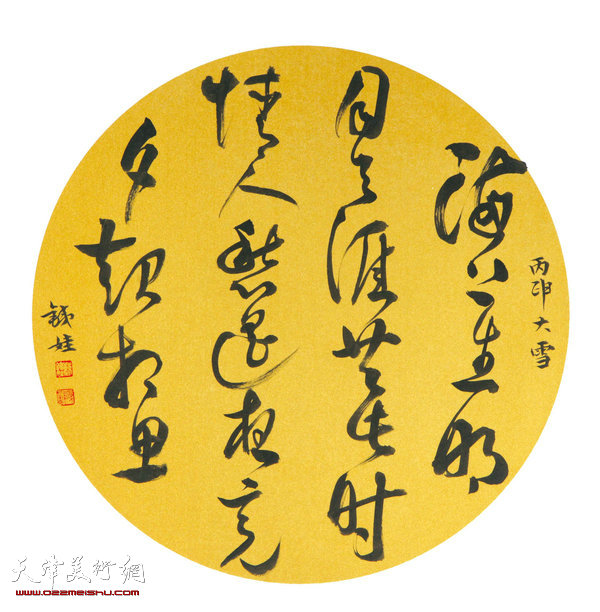 海上生明
月天涯共此时
情人怨遥夜竟
夕起相思
丙申大雪
天津美術網
www.022meishu.com